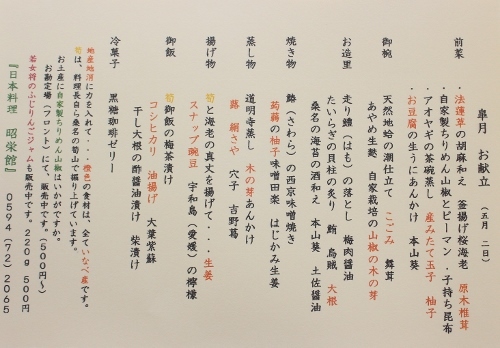 皐月　お献立　（五月　二日）
前菜　・法蓮草の胡麻和え　釜揚げ桜海老　原木椎茸
・自家製ちりめん山椒とピーマン　・子持ち昆布
・アオヤギの茶碗蒸し　産みたて玉子　柚子
・お豆腐の生うにあんかけ　本山葵
御椀　天然地蛤の潮仕立て　こごみ　舞茸
あやめ生麩　自家栽培の山椒の木の芽
お造里　走り鱧（はも）の落とし　梅肉醤油
たいらぎの貝柱の炙り　鮪　烏賊　大根
桑名の海苔の酒和え　本山葵　土佐醤油
焼き物　鰆（さわら）の西京味噌焼き
蒟蒻の柚子味噌田楽　はじかみ生姜
蒸し物　道明寺蒸し　木の芽あんかけ
蕗　絹さや　穴子　吉野葛
揚げ物　筍と海老の真丈を揚げて・・・生姜
スナップ豌豆　宇和島（愛媛）の檸檬
御飯　筍御飯の梅茶漬け
コシヒカリ　油揚げ　大葉紫蘇
干し大根の酢醤油漬け　柴漬け
冷菓子　黒糖珈琲ゼリー
地産地消に力を入れて・・・橙色の食材は、全ていなべ産です。
筍は、料理長自ら桑名の筍山で掘り上げています。
お土産に自家製ちりめん山椒はいかがですか。
お勘定場（フロント）にて、販売中です。（５００円～）
若女将のふじりんごジャムも販売中です。２２０ｇ　５００円
『日本料理　昭栄館』　０５９４（７２）２０６５